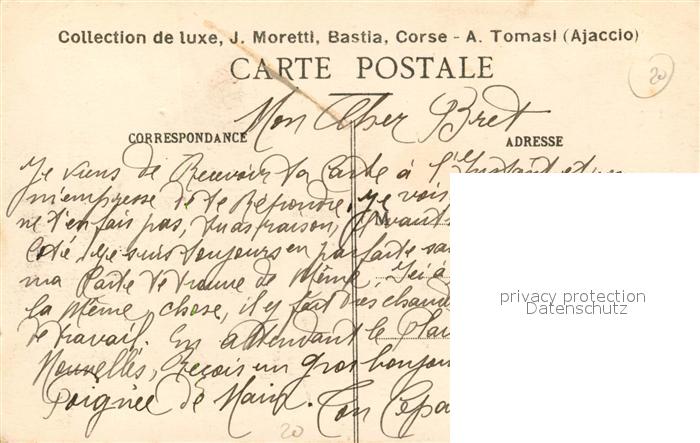 Collection de luxe, J. Moretti, Bastia, Corse - A. Tomasi (Ajaccio)
CARTE POSTALE
20
Mon Cher Bret
CORRESPONDANCE
ADRESSE
Je viens de Recevoir ta Carte à l'Instant et
m'empresse de te Répondre, Je vois
ne t'en fais pas, tu as raison,
M
Coté, Je suis toujours en parfaite
ma Carte te trouve de Même, Ici à
la Même chose, il y fait très chaud
de travail. En attendant le
Nouvelles, Reçois un gros bonjour
Poignée de Main. Ton
20
privacy protection
Datenschutz